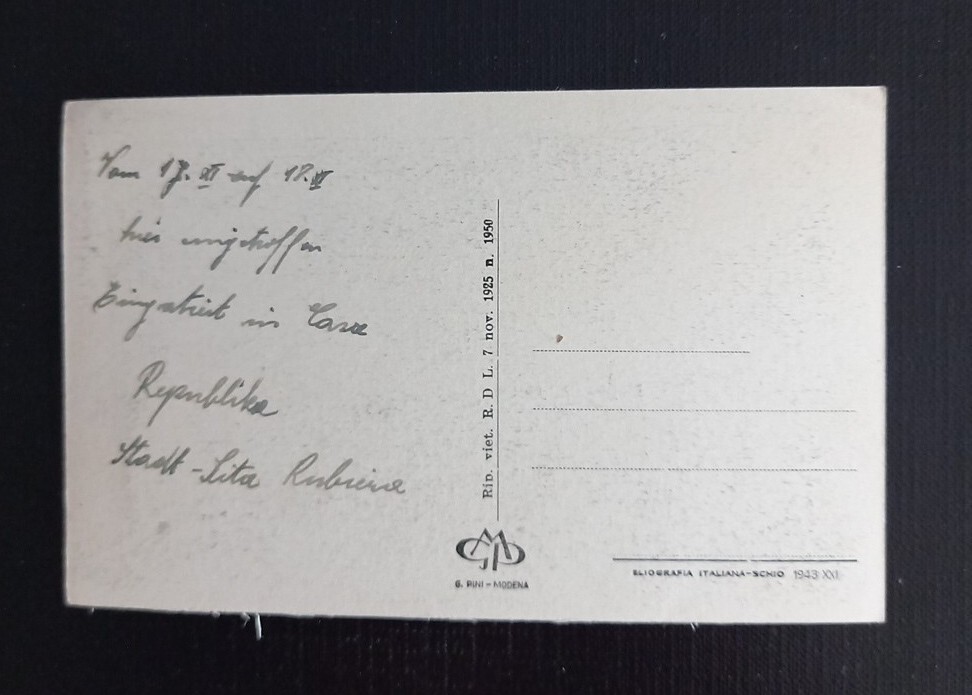 Vom 17. XI auf 18. XI
hier eingetroffen
in Casa
Republika
Stadt - Sita Rubiera
Rip. viet. R. D. L. 7 nov. 1925 n. 1950
GMP
G. PINI - MODENA
ELIOGRAFIA ITALIANA-SCHIO 1943 XXI